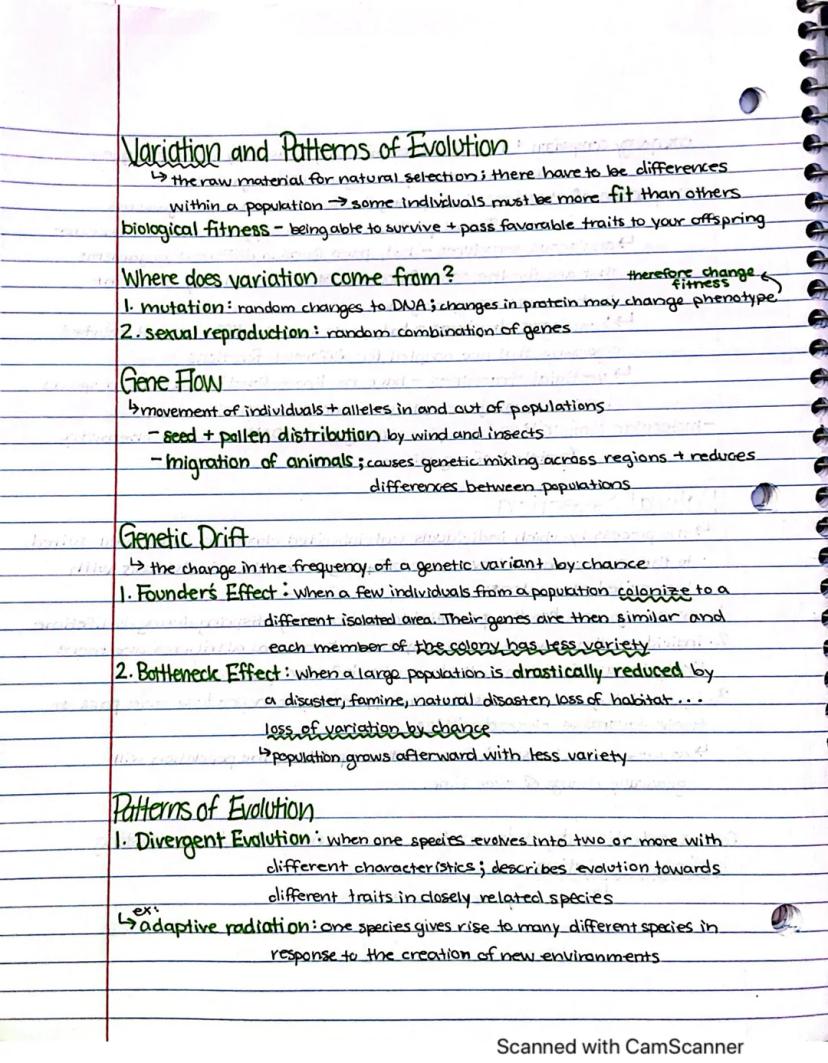 Variation and Patterns of Evolution
↳ the raw material for natural selection; there have to be differences
within a population → some individuals must be more fit than others
biological fitness - being able to survive + pass favorable traits to your offspring
Where does variation come from?
therefore change
fitness
1. mutation: random changes to DNA; changes in protein may change phenotype
2. sexual reproduction: random combination of genes
Gene Flow
↳ movement of individuals + alleles in and out of populations
- seed + pollen distribution by wind and insects
- migration of animals; causes genetic mixing across regions + reduces
differences between populations
Genetic Drift
↳ the change in the frequency of a genetic variant by chance
1. Founder's Effect: when a few individuals from a population colonize to a
different isolated area. Their genes are then similar and
each member of the colony has less variety
2. Bottleneck Effect: when a large population is drastically reduced by
a disaster, famine, natural disaster, loss of habitat...
loss of variation by chance
↳ population grows afterward with less variety
Patterns of Evolution
1. Divergent Evolution: when one species evolves into two or more with
different characteristics; describes evolution towards
different traits in closely related species
ex:
↳ adaptive radiation: one species gives rise to many different species in
response to the creation of new environments
Scanned with CamScanner